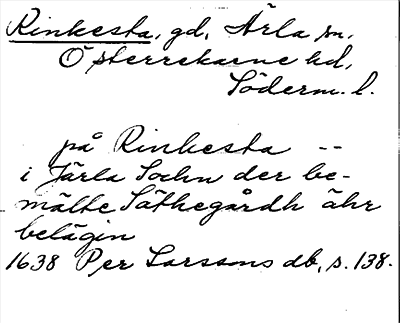 Rinkesta, gd, Ärla sn,
Österrekarne hd,
Söderm. l.
på Rinkesta --
i Järla Sochn der be-
mälte Säthegårdh ähr
belägin
1638 Per Larssons db, s. 138.